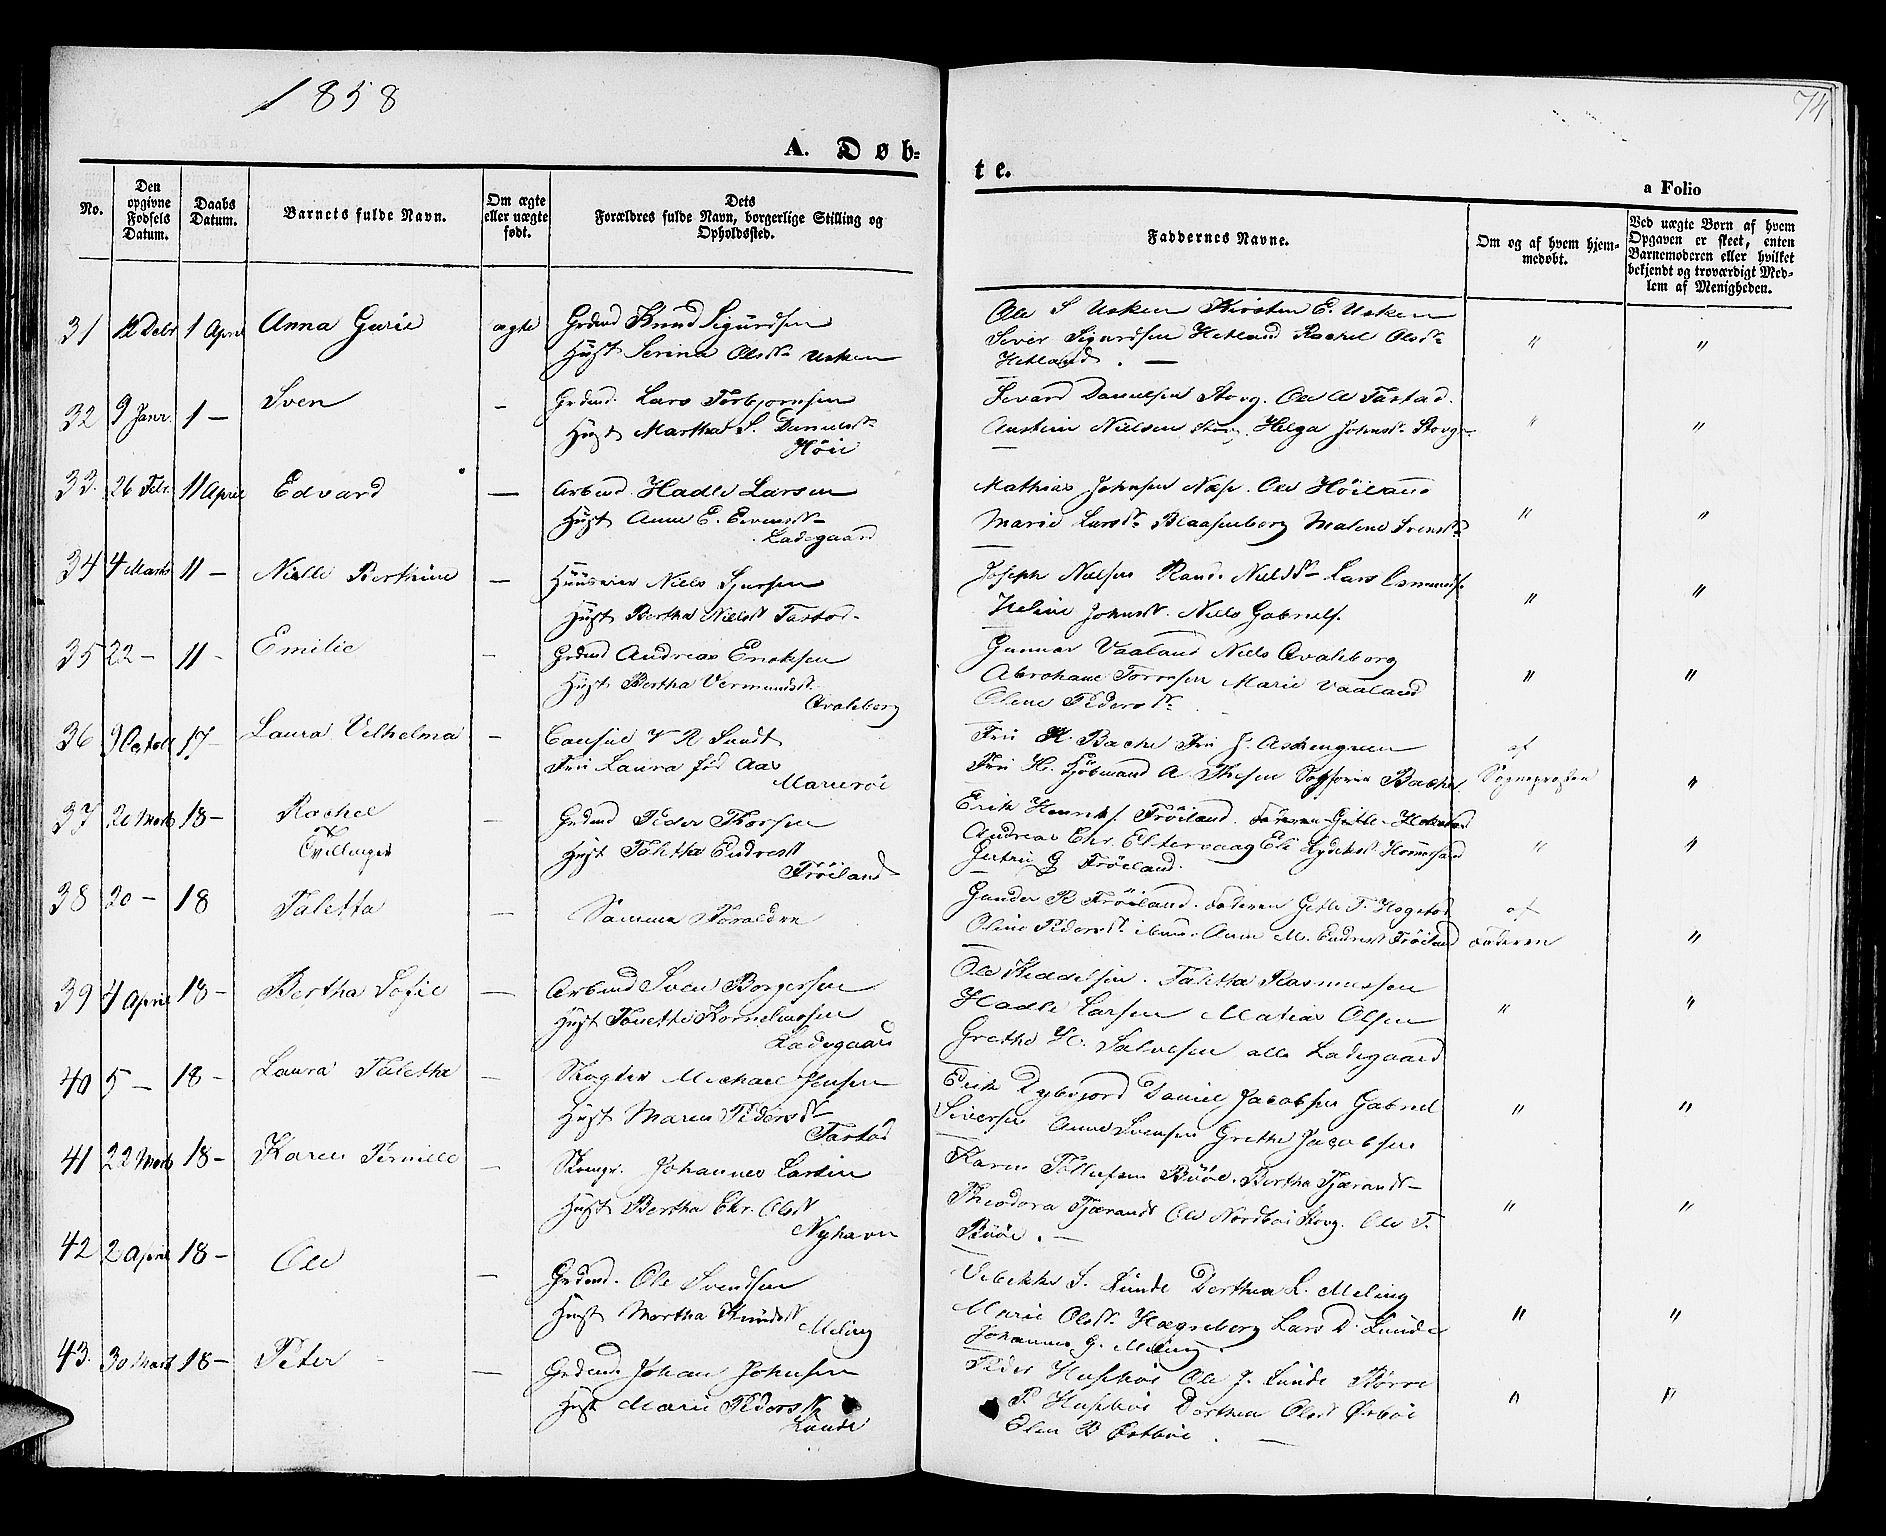 1858
74
A. Døb=
te.
a Folio
No.
Den opgivne Fødsels Datum.
Daabs Datum.
Barnets fulde Navn.
Om ægte eller uægte født.
Dets Forældres fulde Navn, borgerlige Stilling og Opholdssted.
Faddernes Navne.
Om og af hvem hjemmedøbt.
Ved uægte Børn af hvem Opgaven er skeet, enten Barnemoderen eller hvilket bekjendt og troværdigt Medlem af Menigheden.
31 12 Debr 1 April Anna Gurie ægte Grdmd Knud Sigurdsen
Hust Serina Olsdt Usken
Ole S Usken Kirsten E. Usken
Siver Sigurdsen Hetland Rachel Olsdt
Hetland. — " "
32 9 Janr. 1 — Sven — Grdmd. Lars Torbjornsen
Hust Martha S. Danielsdt
Höie
Sevard Danielsen Storg. Ole A Tastad.
Austin Nielsen Storg. Helga Johnsdt Storg— " "
33. 26 Febr. 11 April Edvard — Arbmd. Hadle Larsen
Hust Anne E. Evensdt
Ladegaard
Mathias Johnsen Næse. Ole Höiland
Marie Larsdt Blaasenborg Malene Svensdt " "
34 4 Marts 11 — Nielle Bertine — Huusmier Niels Sjursen
Hust Bertha Nielsdt Tastad.
Joseph Nielsen Rand. Nielsdt Lars Osmunds.
Heline Johnsdt. Niels Gabriels. " "
35 22 — 11 — Emilie — Grdmd Andreas Eriksen
Hust Bertha Vermundsdt
Qvaleberg
Gunnar Vaaland Niels Qvaleberg
Abrahane Torresen Marie Vaaland
Oline Pedersdt " "
36 9 Octob 17 — Laura Velhelma — Consul V R Sundt
Fru Laura fød Aas
Marierö
Fru H. Bache Fru J. Aschengreen
Fru H. Kjöbmand A. Thesen Bache
af Sogneprosten "
37 20 Marts 18 — Rachel
Tvillinger — Grdmd Peder Thorsen
Hust Talitha Endresdt
Fröiland
Erik Henriks. Fröiland.
Andreas Chr. Eltervaag Eli Lydiksdt Hommersand
Gertru G Fröiland. " "
38 20 — 18 Taletta — Samme Forældre
Gunder R Fröiland. Faderen Gitle T. Hogstad
Oline Pedersdt ibm. Anne M. Endresdt Fröiland
af Faderen "
39 4 April 18 — Bertha Sofie — Arbmd Sven Borgersen
Hust Tonette Kornelinssen
Ladegaard
Ole Keddelsen. Talitha Rasmussen
Hadle Larsen Matias Olsen
Grethe H. Salvesen alle Ladegaard " "
40 5 — 18 — Laura Taletha — Skogter Michael Jensen
Hust Maren Pedersdt
Tastad
Erik Dybfjord Daniel Jacobsen Gabriel
Siversen Anne Svensen Grethe Jacobsen " "
41 22 Marts 18 — Karen Pernille — Skomgr. Johannes Larsen
Hust Bertha Chr. Olsdt
Nyhavn
Karen Tollefsen Buöe. Bertha Tjærandt—
Theodora Tjærandt Ole Nordboe Storg. Ole T.
Buöe. — " "
42 2 April 18 — Ole — Grdmd. Ole Svendsen
Hust Martha Knudsdt
Meling
Vebikke S. Lunde Dorthea L. Meling
Marie Olsdt Hagreberg Lars D. Lunde
Johannes G. Meling. " "
43. 30 Marts 18 — Peter — Grdmd Johan Johnsen
Hust Marie Pedersdt
Lunde
Peder Huseböe Ole J. Lunde Börre
P. Huseböe Dorthea Olsdt Østböe
Olen B Østböe. — " "